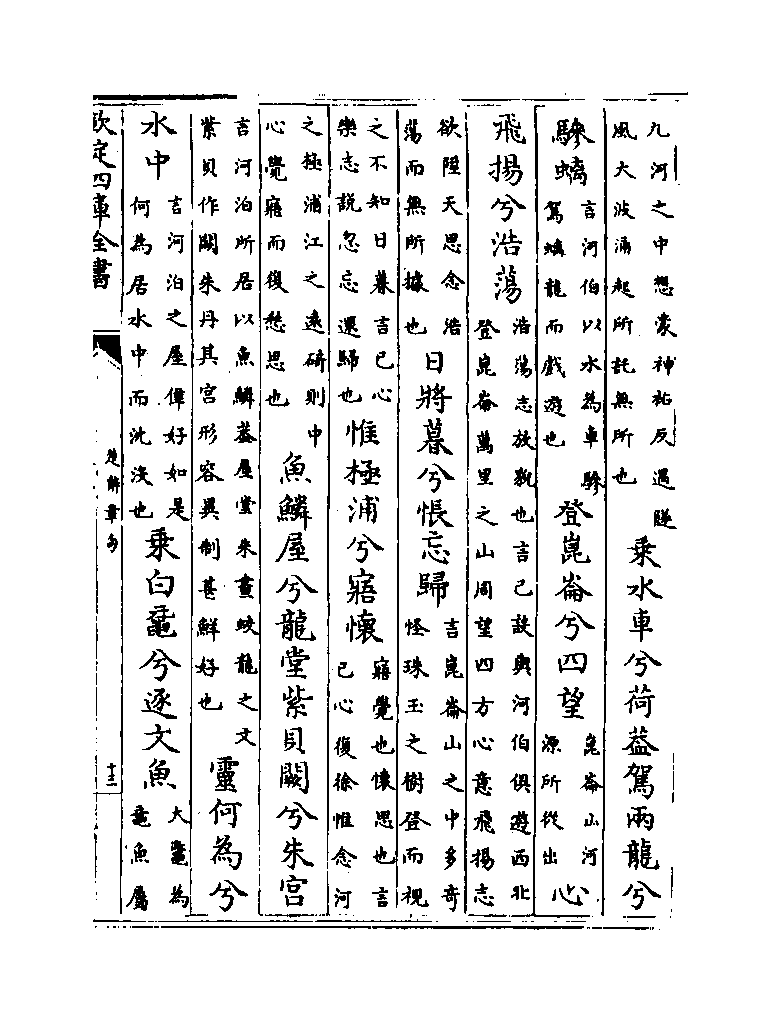 九河之中想蒙神祐反遇隧
風大波涌起所託無所也
乘水車兮荷葢駕兩龍兮
驂螭
言河伯以水為車驂
駕螭龍而戲遊也
登崑崙兮四望
崑崙山河
源所從出
心
飛揚兮浩蕩
浩蕩志放貌也言己設與河伯俱遊西北
登崑崙萬里之山周望四方心意飛揚志
欲陞天思念浩
蕩而無所據也
日將暮兮悵忘歸
言崑崙山之中多奇
怪珠玉之樹登而視
之不知日暮言己心
樂志說忽忘還歸也
惟極浦兮寤懷
寤覺也懷思也言
己心復徐惟念河
之極浦江之遠碕則中
心覺寤而復愁思也
魚鱗屋兮龍堂紫貝闕兮朱宮
言河泊所居以魚鱗葢屋堂朱畫蛟龍之文
紫貝作闕朱丹其宮形容異制甚鮮好也
靈何為兮
水中
言河泊之屋偉好如是
何為居水中而沈沒也
乘白黿兮逐文魚
大鼈為
黿魚屬
欽定四庫全書
楚辭章句
十三